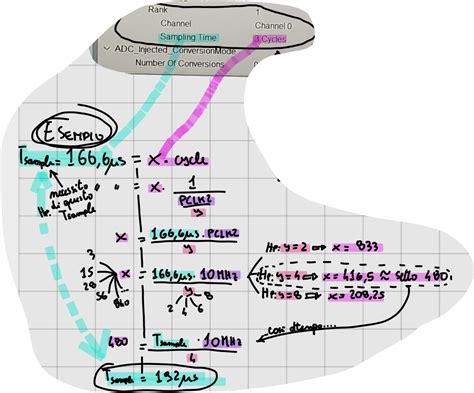 Rank 1
Channel Channel 0
Sampling Time 3 Cycles
ADC_Injected_ConversionMode
Number Of Conversions 0
ESEMPIO
Tsample = 166,6µs = x · cycle
necessito di questo Tsample
Hp.
" " = x · 1 / PCLK2 / y
x = 166,6µs · PCLK2 / y
3
15
28
56 ... 840
x = 166,6µs · 10MHz / y
2 4 6 8
Hp: y=2 => x = 833
Hp: y=4 => x = 416,5 ≈ scelgo 480
Hp: y=8 => x = 208,25
così otengo....
480 = Tsample · 10MHz / 4
Tsample = 192µs